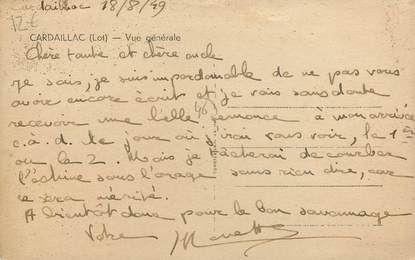 Cardaillac 18/8/49
12€
CARDAILLAC (Lot) — Vue générale
Chère tante et chère oncle
Je sais, je suis impardonable de ne pas vous
avoir encore écrit et je vais sans doute
recevoir une belle semonce à mon arrivée
c.à.d. le jour où j'irai vous voir, le 1er
ou le 2. Mais je tâcherai de courber
l'échine sous l'orage sans rien dire, car
ce sera mérité.
A bientôt donc pour le bon savonnage
Votre